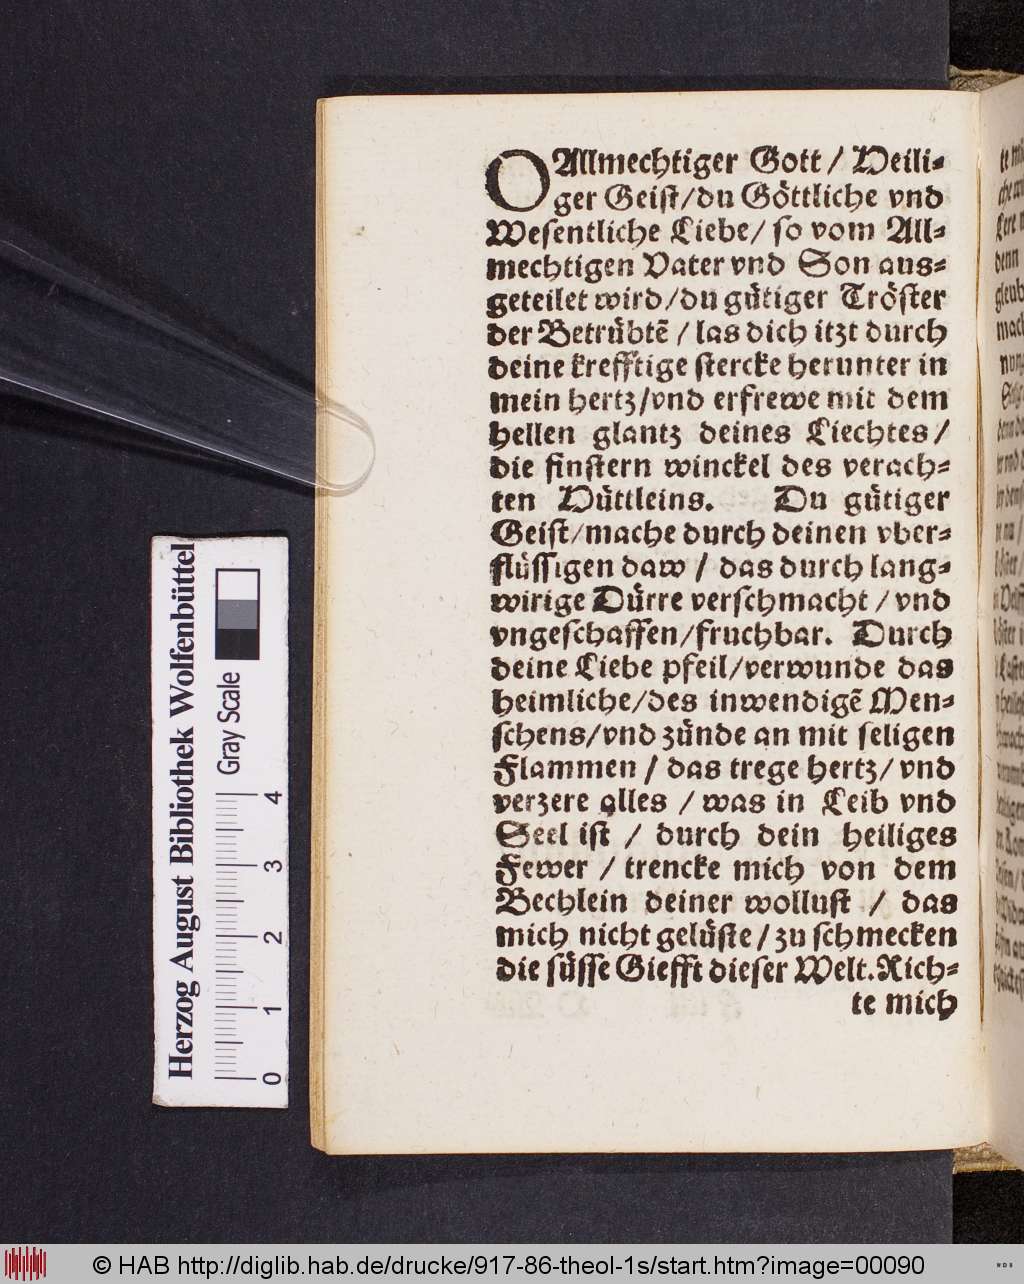 O Allmechtiger Gott / Heili-
ger Geist/du Göttliche vnd
Wesentliche Liebe/ so vom All-
mechtigen Vater vnd Son aus-
geteilet wird/du gütiger Tröster
der Betrübtẽ / las dich itzt durch
deine krefftige stercke herunter in
mein hertz/vnd erfrewe mit dem
hellen glantz deines Liechtes/
die finstern winckel des verach-
ten Hüttleins. Du gütiger
Geist/mache durch deinen vber-
flüssigen daw / das durch lang-
wirige Dürre verschmacht / vnd
vngeschaffen/fruchbar. Durch
deine Liebe pfeil/verwunde das
heimliche/des inwendigẽ Men-
schens/vnd zünde an mit seligen
Flammen / das trege hertz/ vnd
verzere alles / was in Leib vnd
Seel ist / durch dein heiliges
Fewer / trencke mich von dem
Bechlein deiner wollust / das
mich nicht gelüste / zu schmecken
die süsse Giefft dieser Welt. Rich-
te mich
Herzog August Bibliothek Wolfenbüttel
Gray Scale
0 1 2 3 4
© HAB http://diglib.hab.de/drucke/917-86-theol-1s/start.htm?image=00090